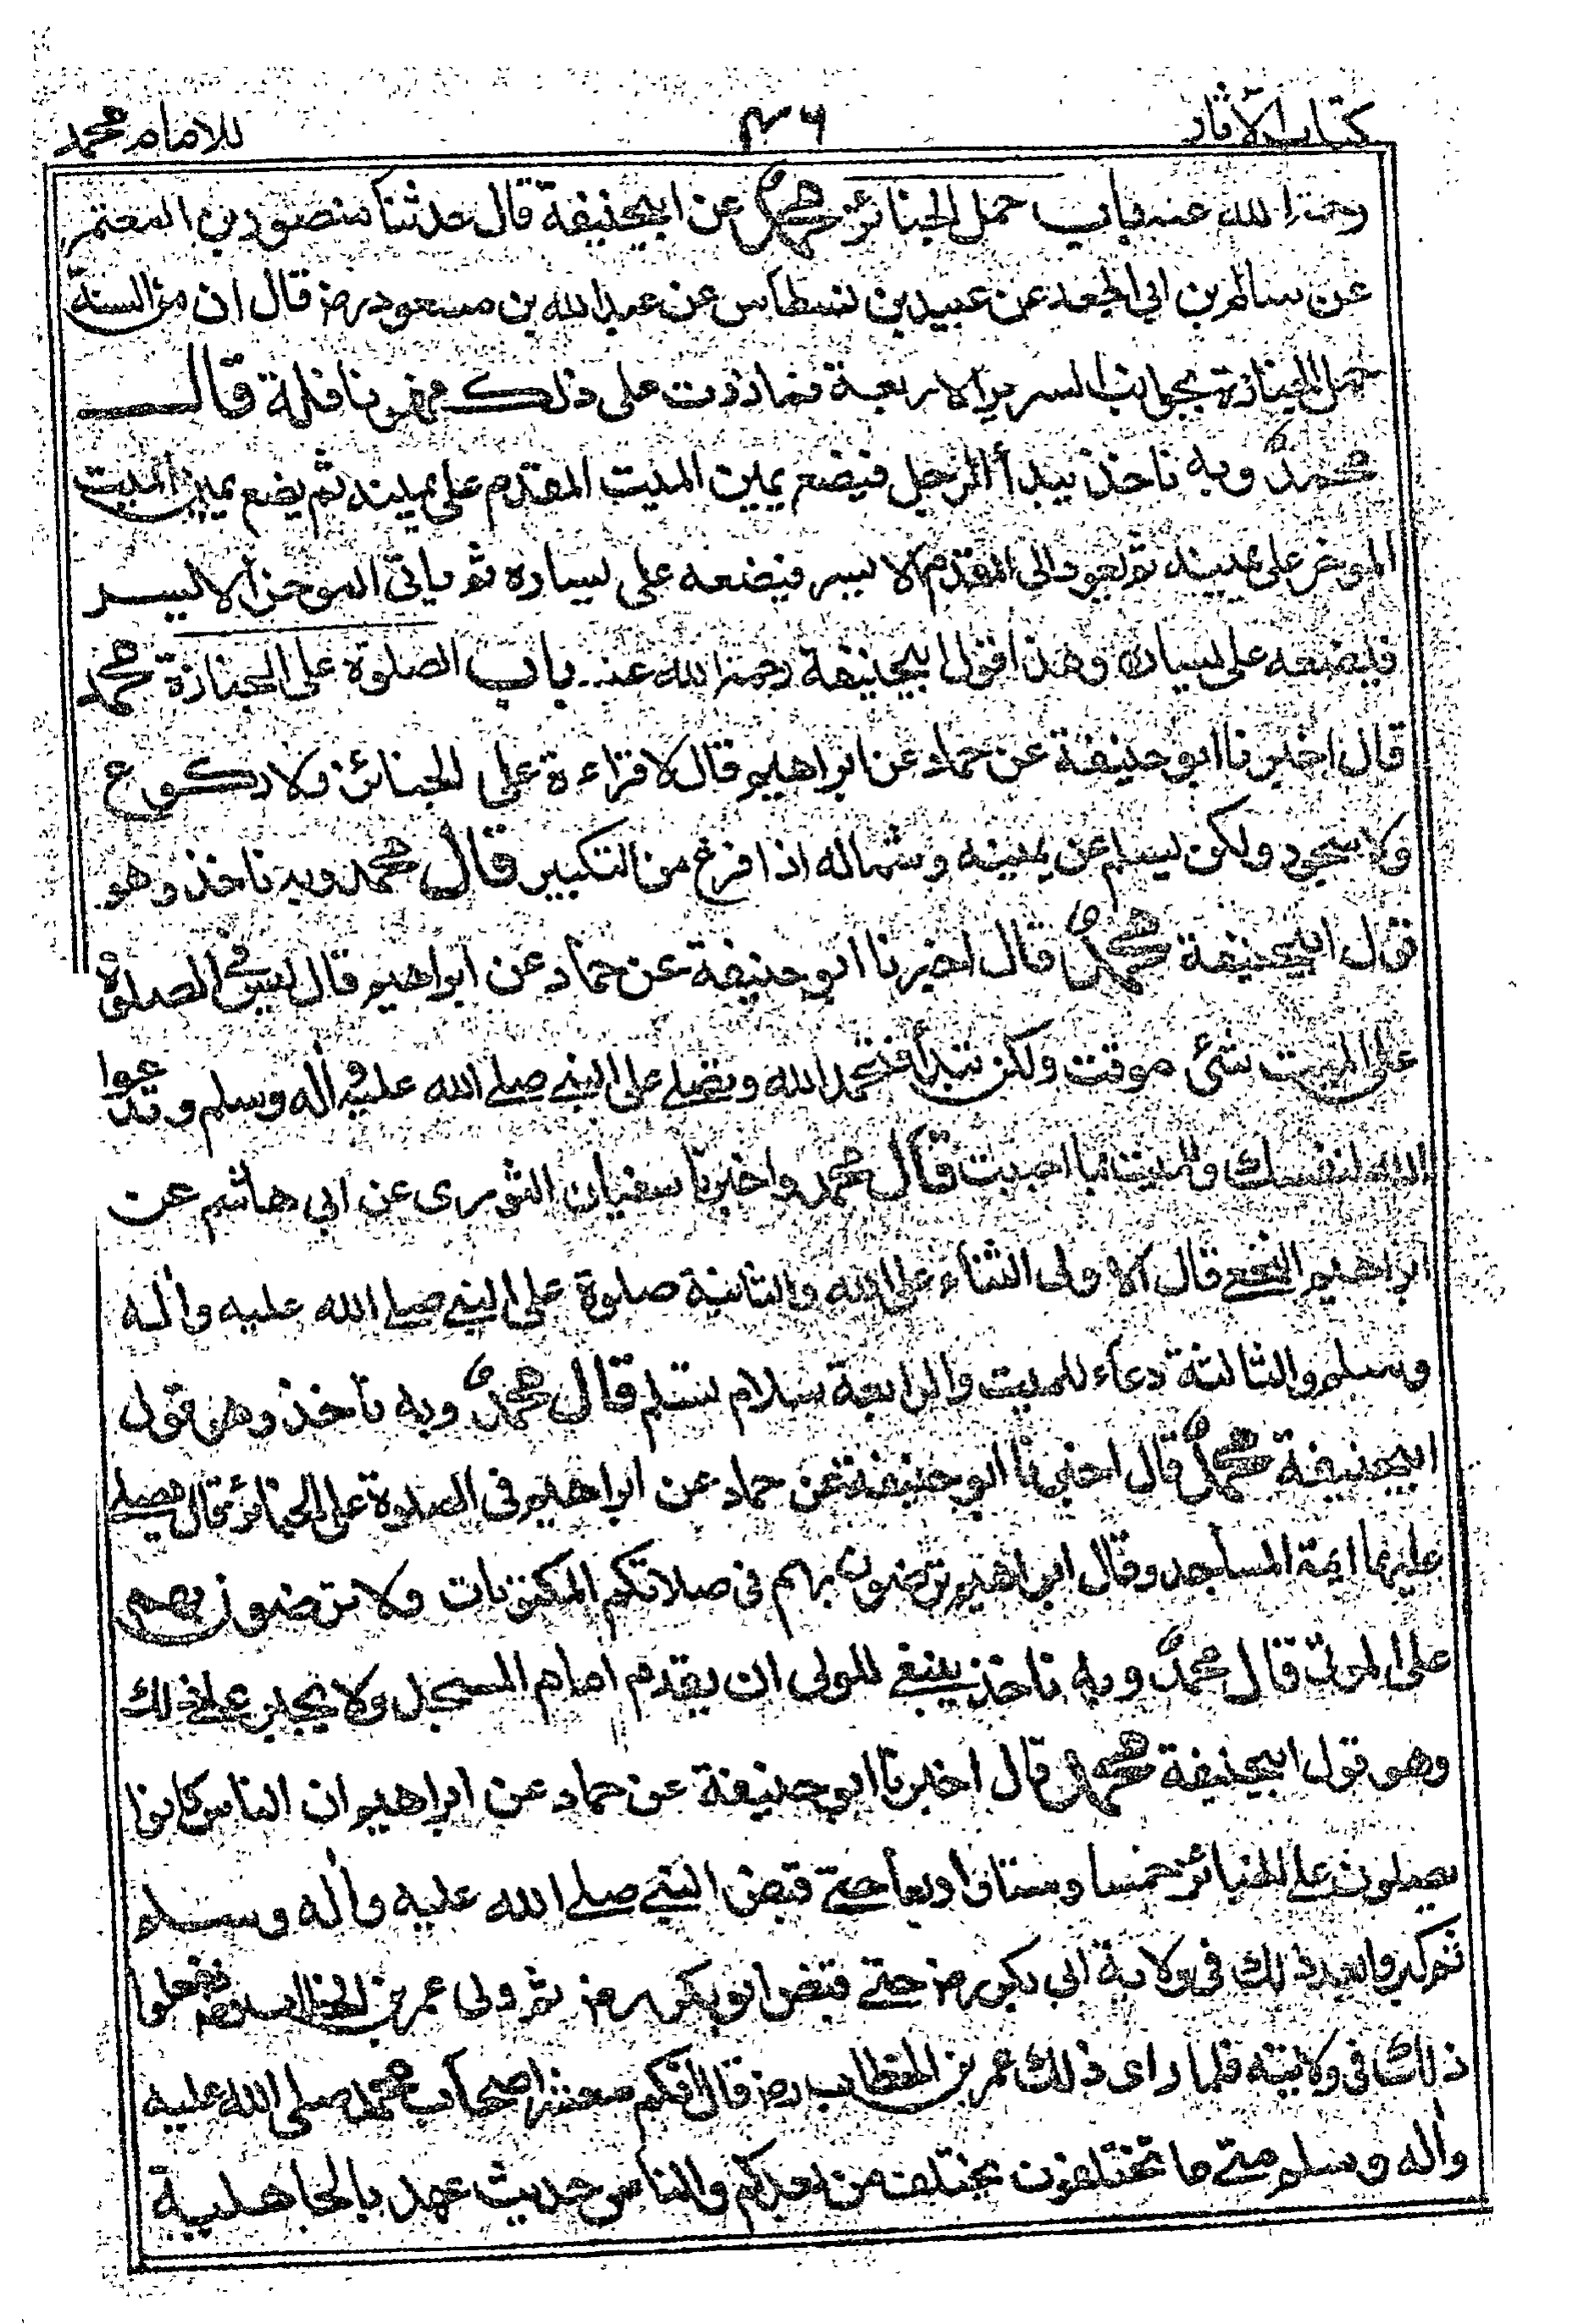 كتاب الآثار ٤٦ للامام محمد
رحمة الله عنه باب حمل الجنائز محمد عن ابيحنيفة قال حدثنا منصور بن المعتمر
عن سالم بن ابي الجعد عن عبيد بن نسطاس عن عبد الله بن مسعود رض قال ان من السنة
حمل الجنازة بجوانب السرير الاربعة فما زدت على ذلك فهو نافلة قال
محمدؒ وبه ناخذ يبدأ الرجل فيضع يمين الميت المقدم على يمينه ثم يضع يمين الميت
الموخر على يمينه ثم يعود الى المقدم الايسر فيضعه على يساره ثم ياتى الموخر الايسر
فيضعه على يساره وهذا قول ابيحنيفة رحمة الله عنه باب الصلوة على الجنازة محمد
قال اخبرنا ابو حنيفة عن حماد عن ابراهيم قال لا قراءة على الجنائز ولا ركوع
ولا سجود ولكن يسلم عن يمينه وشماله اذا فرغ من التكبير قال محمد وبه ناخذ وهو
قول ابيحنيفة محمدؒ قال اخبرنا ابو حنيفة عن حماد عن ابراهيم قال ليس في الصلوة
على الميت شئ موقت ولكن تبدأ فتحمد الله وتصلے على النبے صلے الله عليه واٰله وسلم وتدعوا
الله لنفسك وللميت بما احببت قال محمد واخبرنا سفيان الثورى عن ابي هاشم عن
ابراهيم النخعے قال الاولى الثناء على الله والثانية صلوة على النبے صلے الله عليه واٰله
وسلم والثالثة دعاء للميت والرابعة سلام تسلم قال محمدؒ وبه ناخذ وهو قول
ابيحنيفة محمدؒ قال اخبرنا ابو حنيفة عن حماد عن ابراهيم فى الصلوة على الجنائز قال يصلے
عليها ايمة المساجد وقال ابراهيم ترضون بهم فى صلاتكم المكتوبات ولا ترضون بهم
على الموتى قال محمدؒ وبه ناخذ ينبغے للولى ان يقدم امام المسجد ولا يجبر على ذلك
وهو قول ابيحنيفة محمد قال اخبرنا ابو حنيفة عن حماد عن ابراهيم ان الناس كانوا
يصلون على الجنائز خمسا وستا واربعا حتے قبض النبے صلے الله عليه واٰله وسلم
ثم كبروا بعد ذلك فى ولاية ابى بكر رض حتے قبض ابو بكر رض ثم ولى عمر بن الخطاب رض ففعلوا
ذلك فى ولايته فلما راى ذلك عمر بن الخطاب رض قال انكم معشر اصحاب محمد صلى الله عليه
واٰله وسلم متے ما تختلفون يختلف من بعدكم والناس حديث عهد بالجاهلية